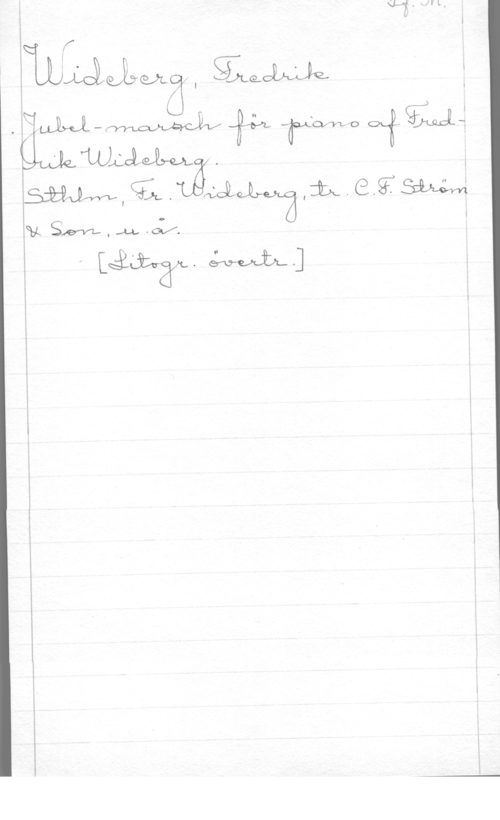 Wideberg, Fredrik
Jubel-marsch för piano af Fred-
rik Wideberg.
Sthlm, Fr. Wideberg, tr. C.F. Ström
& Son, u. å.
[Litogr. övertr.]